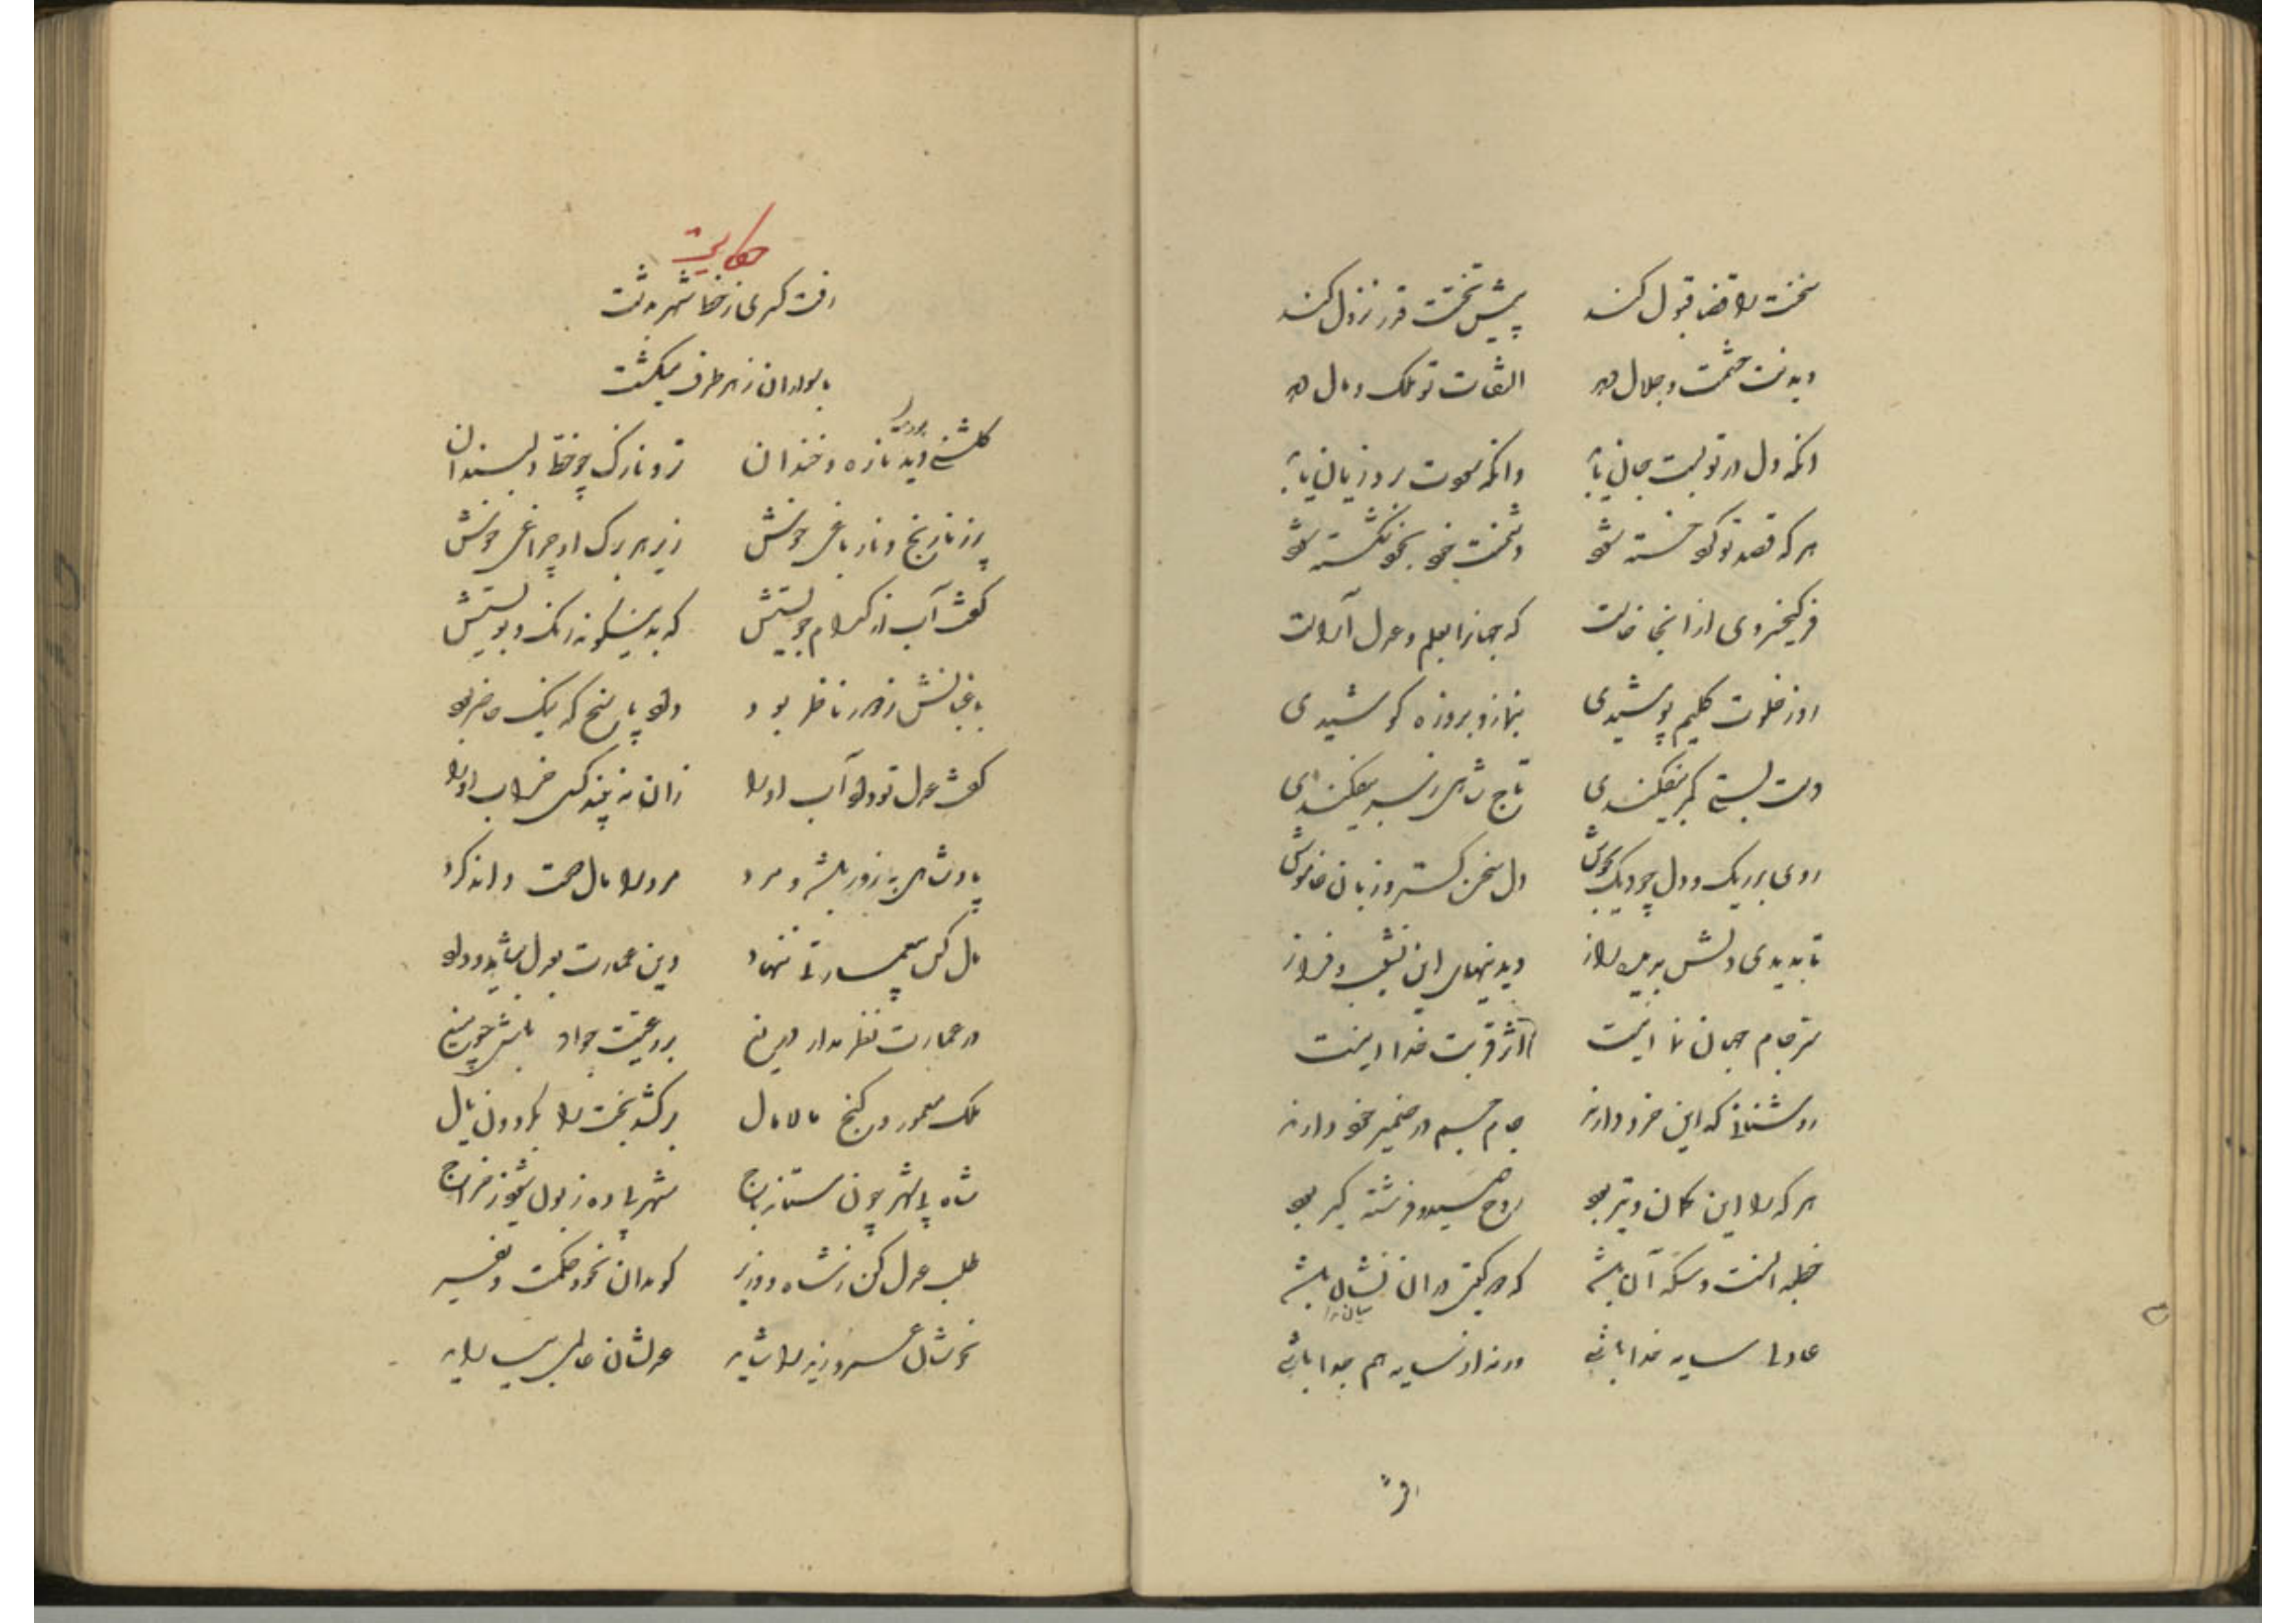 سخنت را قضا قبول کند پیش تختت قدر نزول کند
دیدنت حشمت و جلال دهد التفات تو ملک و مال دهد
انکه دل در تو بست جان یابد وانکه برد زیان یابد
هر که قصد تو کرد خسته شود دشمنت خود بخود شکسته شود
فر کیخسروی ازانجا خاست که جهانرا بعلم و عدل آراست
روز خلوت گلیم پوشیدی بنماز و بروزه کوشیدی
دست بستی کمر بیفکندی تاج شاهی ز سر بیفکندی
روی بر ریک و دل چو دیک بجوش دل سخن کستر و زبان خاموش
تا بدیدی دلش بدیده راز دیدنیهای این نشیب و فراز
سر جام جهان نما اینست اثر قربت خدا اینست
روشنانی که این خرد دارند جام جم در ضمیر خود دارند
هر که را این کمان و تیر بود روح صید و فرشته کیر بود
خطبه انست و سکه آن باشد که در کیتی دران نشان باشد
عادلی سایه خدا باشی ورنه از سایه هم جدا باشی
رفت
حکایت
رفت کسری ز خط شهر بدشت
با سواران ز هر طرف میکشت
کلشنی دید تازه و خندان تر و نازک چو خط دلبندان
پر ز نارنج و نار باغی خوش زیر هر برک او چراغی خوش
کفت آب از کدام جویستش که بدینکونه رنک و بویستش
باغبانش ز دور ناظر بود داد پاسخ که نیک حاضر بود
کفت عدل تو داد آب اورا زان نبیند کسی خراب اورا
پادشاهی بزور باشد و مرد مرد را مال جمع داند کرد
مال کس بی عمارتی ننهاد وین عمارت بعدل باشد و داد
در عمارت نظر مدار دریغ بر رعیت جواد باش چو میغ
ملک معمور و کنج مالامال برکشد بخت را بکردون یال
شاه بی شهر چون ستاند باج شهر بی ده زبون شود ز خراج
طلب عدل کن ز شاه و وزیر کو مدان نحو و حکمت و تفسیر
نحوشان عمرو و زید را شاید عدلشان عالمی بیاراید